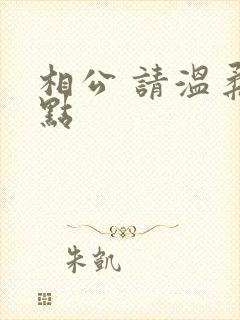 相公 請溫柔
點
朱凱